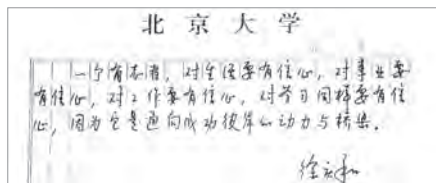 北京大学
一个有志者，对生活要有信心，对事业要
有信心，对工作要有信心，对学习同样要有信
心，因为它是通向成功彼岸的动力与桥梁。